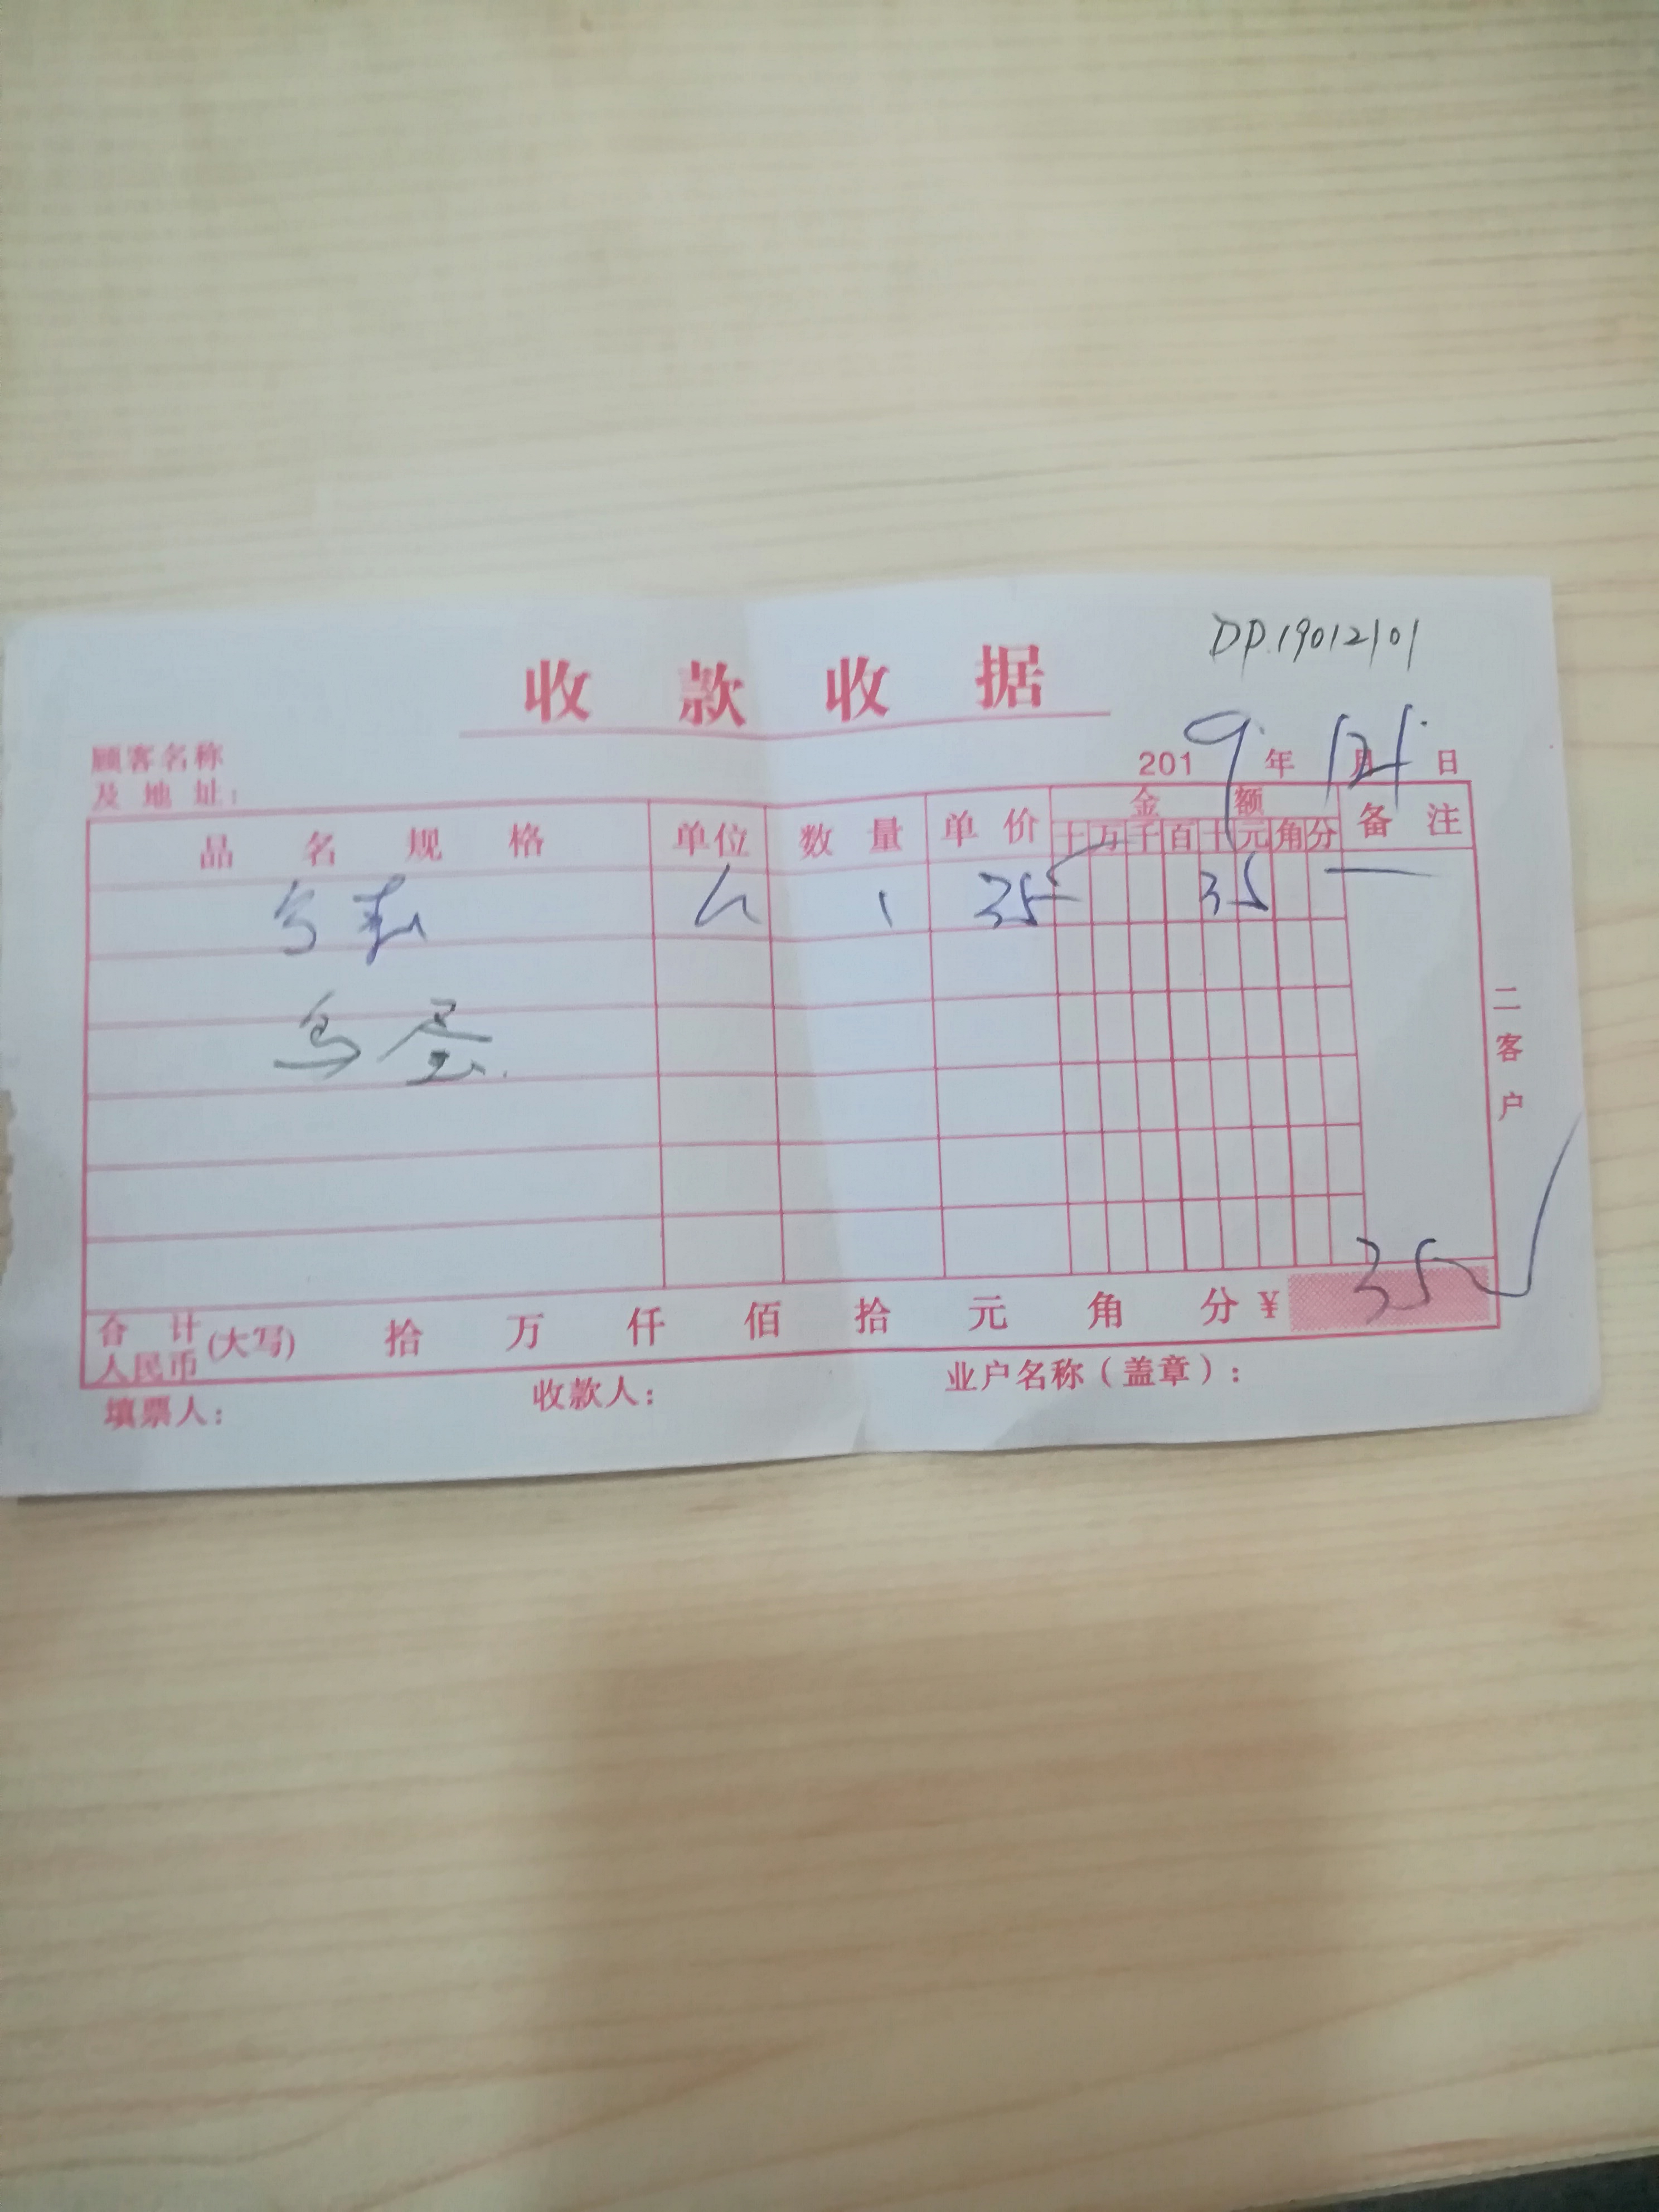 DP.19012101
收款收据
顾客名称
及地址：
2019年1月21日
品名规格 单位 数量 单价 金额 备注
十万千百十元角分
个 1 35 35
鸟蛋
二客户
合计人民币(大写) 拾 万 仟 佰 拾 元 角 分 ¥ 35
填票人： 收款人： 业户名称（盖章）：